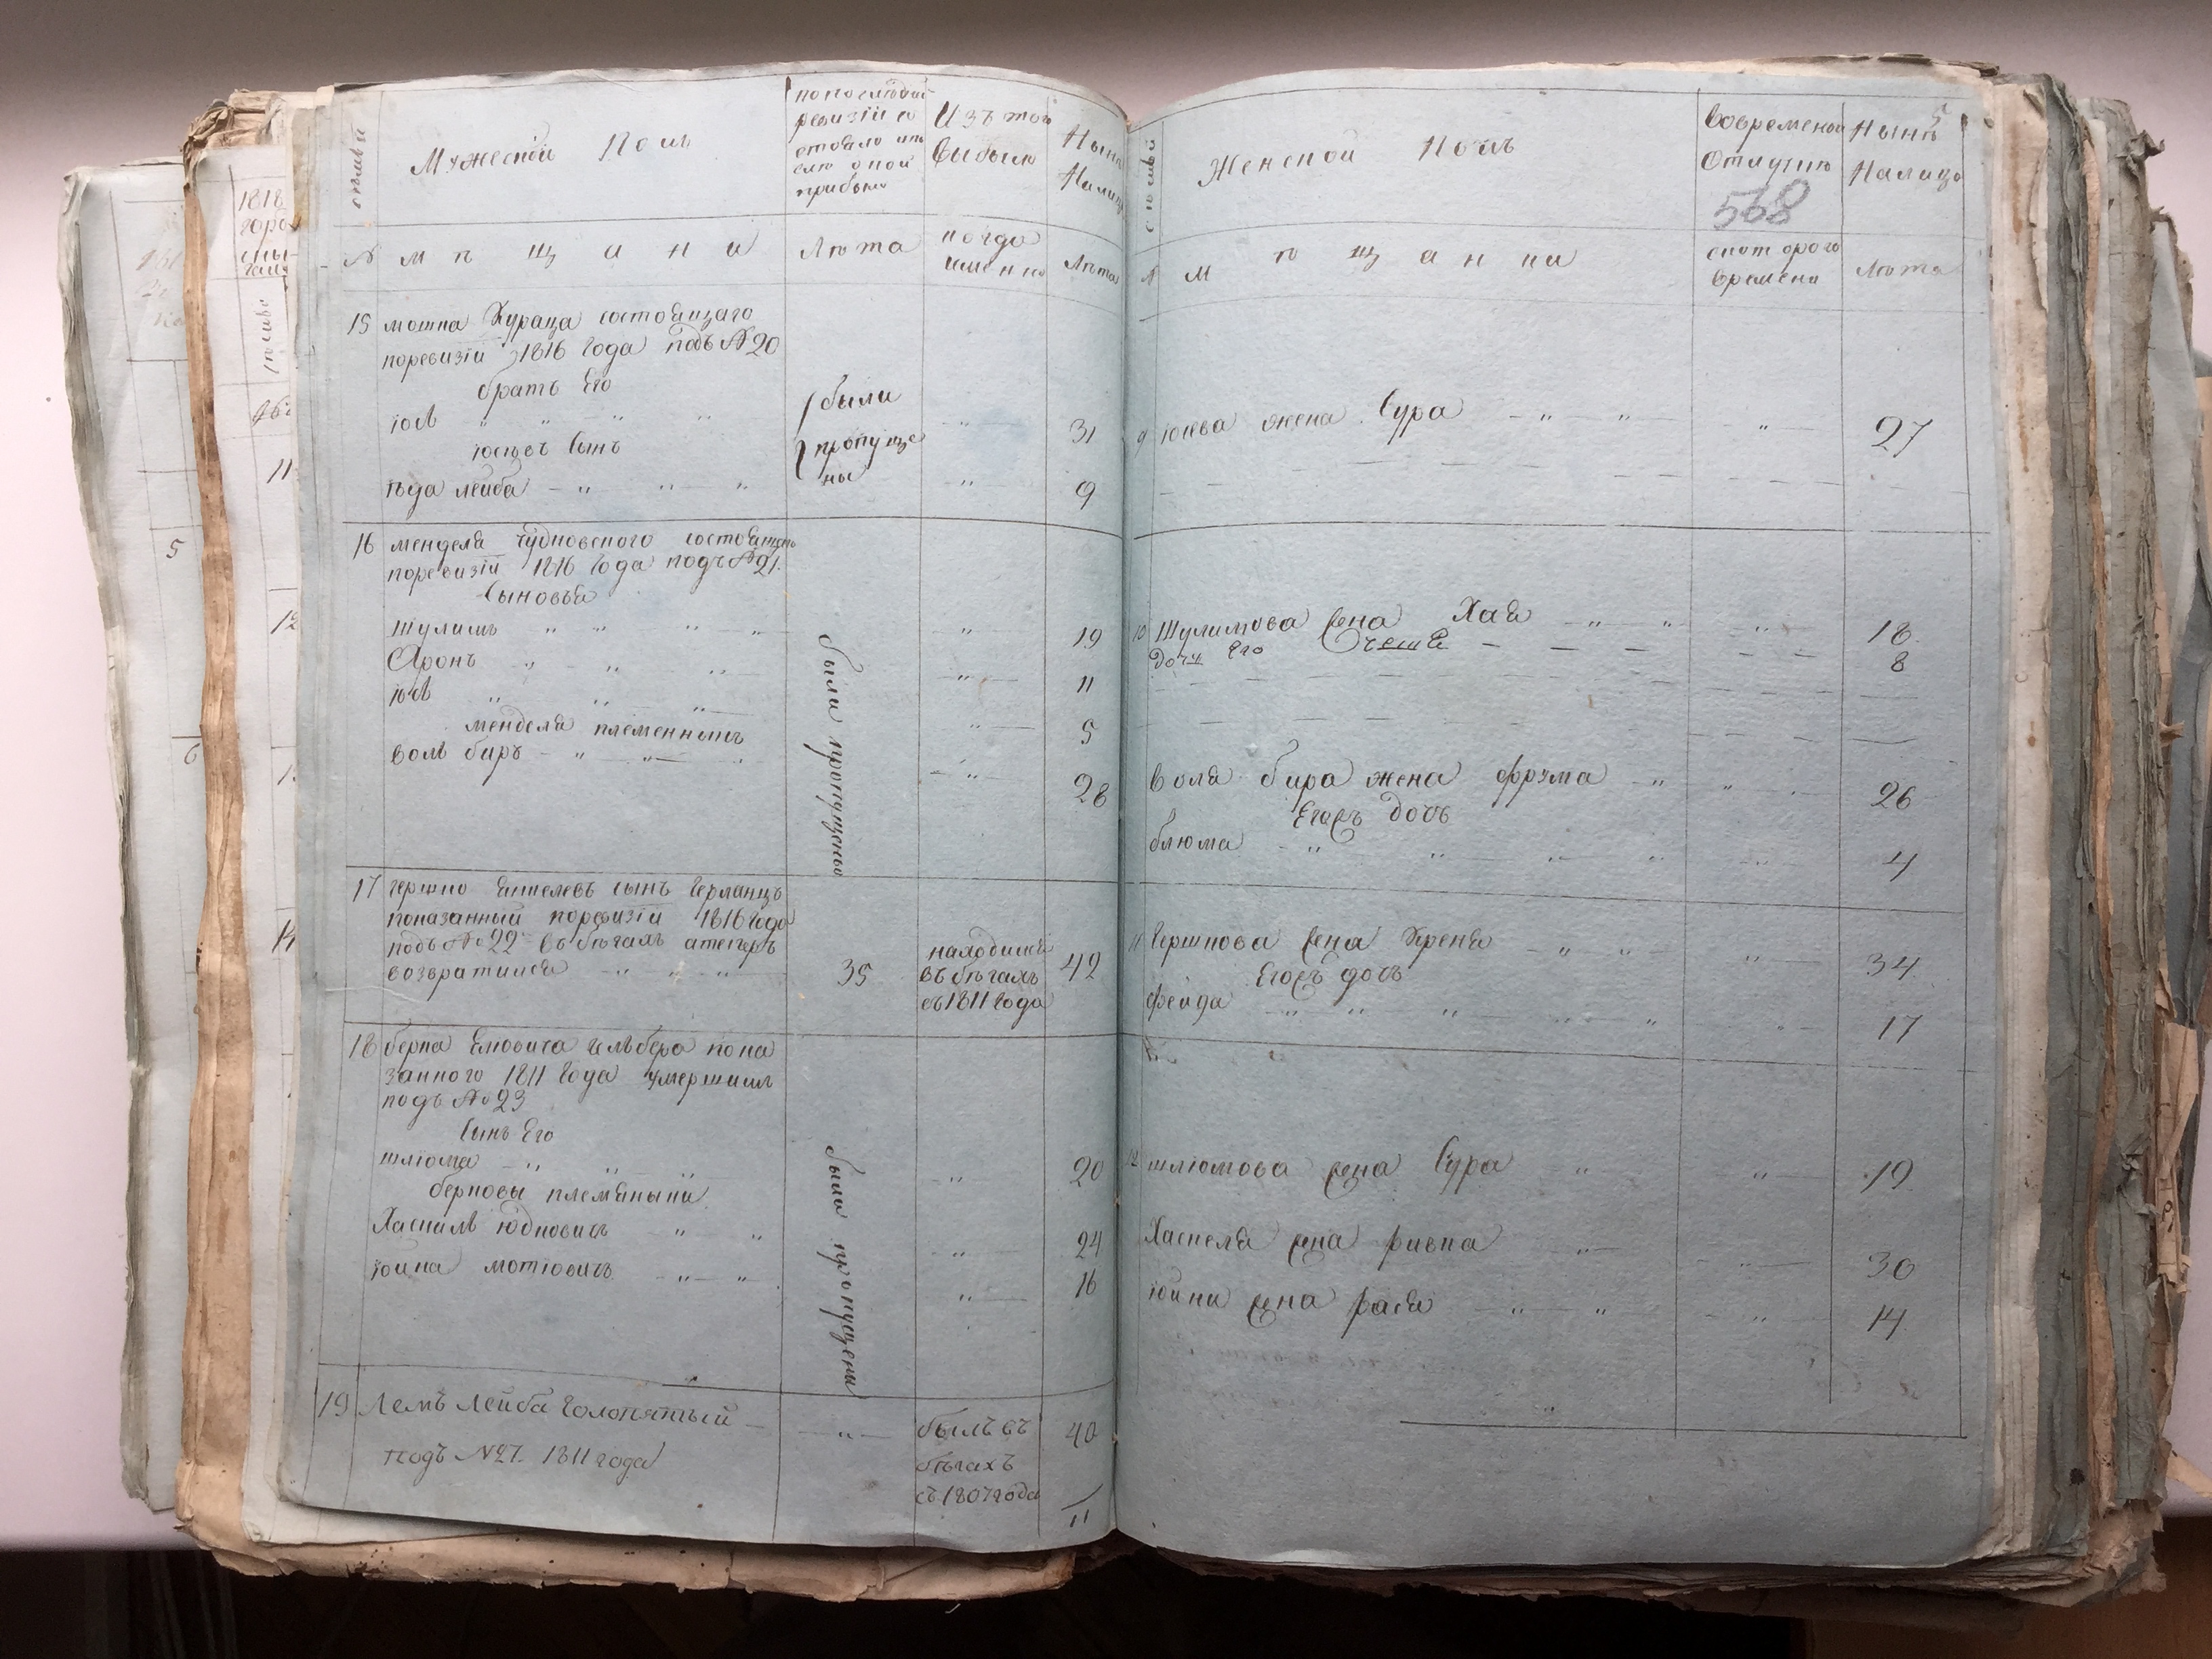 Мужеской Полъ
по последней
ревизіи со
стояло и по
слѣ оной
прибыло
Изъ того
выбыло
Нынѣ
Налицо
№
мѣщани
Лѣта
когда
именно
Лѣта
15 мошка Кураца состоящаго
поревизіи 1816 года подъ №20
братъ Его
юсь
были
31
юсіевъ Сынъ
пропуще
ны
іьда лейба
9
16 мендела Чудновского состоящаго
поревизіи 1816 года подъ №21.
Сыновья
шулимъ 19
Аронъ 11
юсь 5
мендела племенникъ
воль биръ 28
были пропущены
17 гершко Сынъ
показанный поревизіи 1816 года
подъ №22 въ бѣгахъ атеперъ
возвратился
35
находился
въ бѣгахъ
съ 1811 года
42
18 берка пока
занного 1811 года умершимъ
подъ №23
Сынъ Его
шліома 20
берковы племяныки
Хаскиль юдковичъ 24
іойна мотіовичъ 16
были пропущены
19 Лемъ Лейба Голопятый
подъ №27. 1811 года
былъ въ
бѣгахъ
съ 1807 года
40
11
Женской Полъ
Вовременной
Отлучкѣ
568
Нынѣ
Налицо
5
№
мѣщанки
скоторого
времени
Лѣта
9 юсева жена Сура 27
10 Шулимова жена Хая 18
дочь Его 8
воля бира жена фрума 26
Егожъ дочь
блюма 4
11 Гершкова жена Креня 34
Егожъ дочь
фейда 17
12 шлюмова жена Сура 19
Хаскеля жена ривка 30
іойни жена рася 14